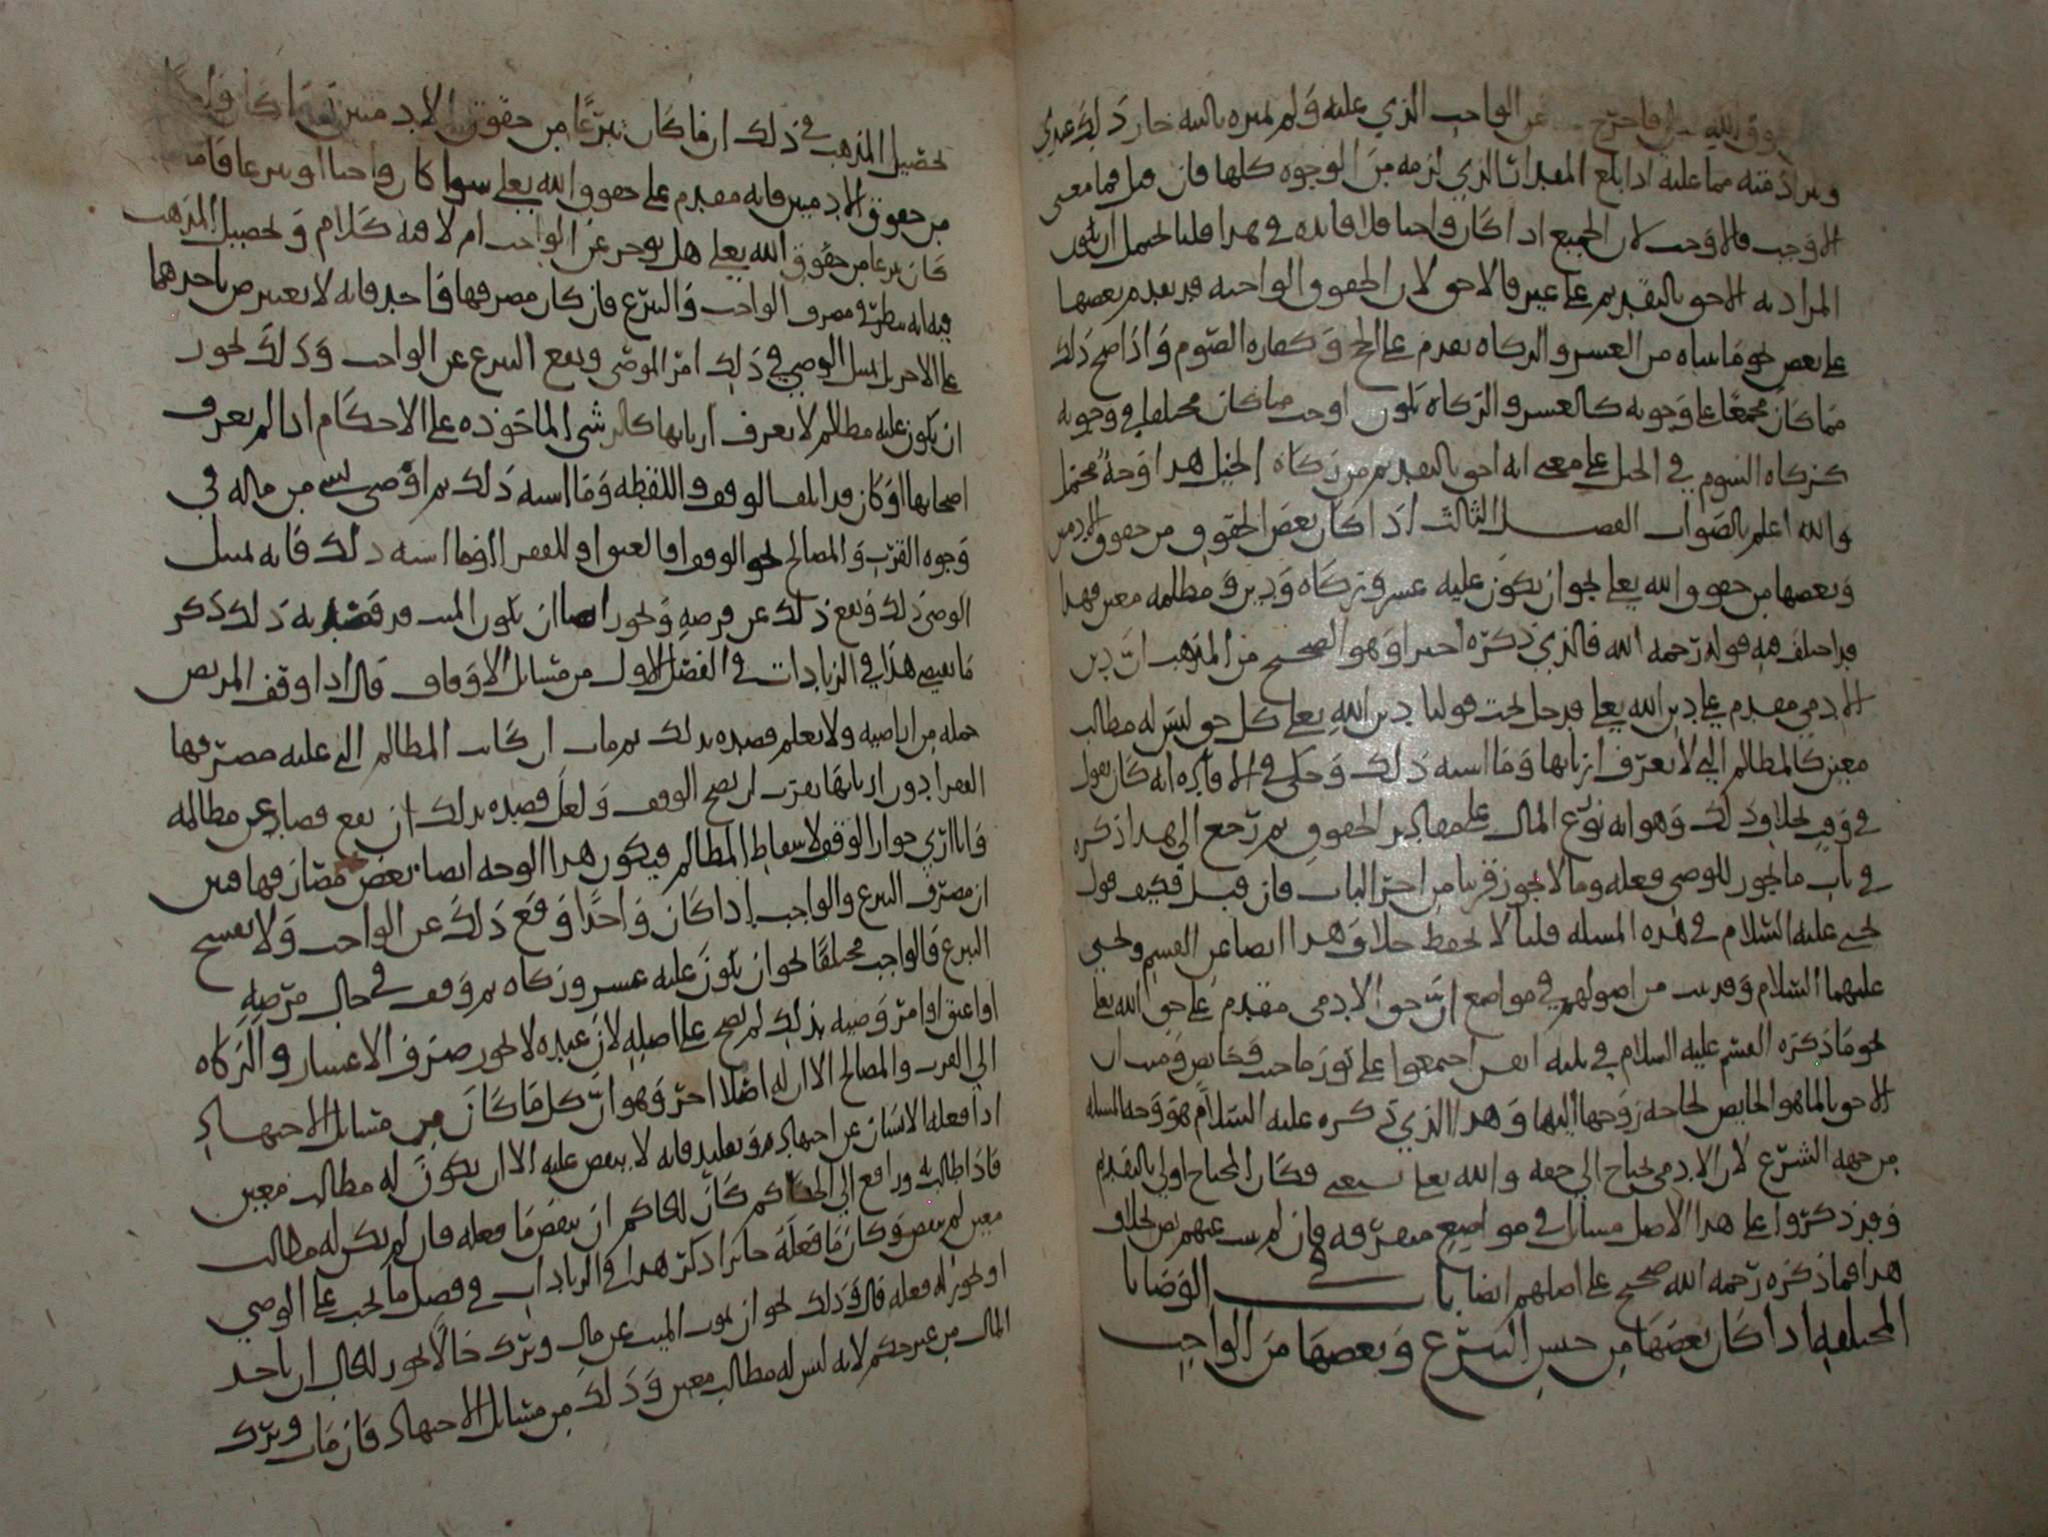 وق الله فاخرج عن الواجب الذي عليه ولم يميزه بالنيه جاز ذلك عندي
وبرأ ذمته مما عليه اذا بلغ المقدار الذي لزمه من الوجوه كلها فان قيل فما معنى
الاوجب فالاوجب لان الجميع اذا كان واجبا فلا فايده في هذا قلنا يحتمل ان يكون
المراد به الاحق بالتقديم على غيره فالاحق لان الحقوق الواجبه قد يقدم بعضها
على بعض نحو ما بيناه من العشر والزكاه يقدم على الحج وكفاره الصوم واذا صح ذلك
فما كان مجمعا على وجوبه كالعشر والزكاه يكون اوجب مما كان مختلفا في وجوبه
كزكاه السوم في الخيل على معنى انه احق بالتقديم من زكاه الخيل هذا وجه محتمل
والله اعلم بالصواب الفصل الثالث اذا كان بعض الحقوق من حقوق الادميين
وبعضها من حقوق الله تعلى نحو ان يكون عليه عشر وزكاه ودين ومظلمه معين فهذا
قد اختلف فيه قوله رحمه الله فالذي ذكره اخيرا وهو الصحيح من المذهب ان دين
الادمي مقدم على دين الله تعلى فدخل تحت قولنا دين الله تعلى كل حق ليس له مطالب
معين كالمظالم التي لا تعرف اربابها وما اشبه ذلك وحكى في الافاده انه كان يقول
في وقت بخلاف ذلك وهو انه توزع المال على مقادير الحقوق ثم رجع الى هذا ذكره
في باب ما يجوز للوصي فعله وما لا يجوز قريبا من اخر الباب فان قيل فكيف قول
يحيى عليه السلام في هذه المسله قلنا لا نحفظ خلافا وهذا ايضا عن القسم ويحيى
عليهما السلام وقد ثبت من اصولهم في مواضع ان حق الادمي مقدم على حق الله تعلى
نحو ما ذكره القسم عليه السلام في ثلثه انفس اجتمعوا على نور ماجنب وحايض وميت ان
الاحق بالما هو الحايض لحاجه زوجها اليها وهذا الذي ذكره عليه السلام هو وجه المسله
من جهه الشرع لان الادمي يحتاج الى حقه والله تعلى يستغني فكان المحتاج اولى بالتقديم
وقد ذكروا على هذا الاصل مسايل في مواضع متفرقه فان لم يثبت عنهم نص بخلاف
هذا فما ذكره رحمه الله صحيح على اصلهم ايضا باب في الوصايا
المختلفه اذا كان بعضها من جنس التبرع وبعضها من الواجب
تحصيل المذهب في ذلك ان ما كان تبرعا من حقوق الادميين وما كان واجبا
من حقوق الادميين فانه مقدم على حقوق الله تعلى سوا كان واجبا او تبرعا فاما
ما كان تبرعا من حقوق الله تعلى هل يوخر عن الواجب ام لا فيه كلام وتحصيل المذهب
فيه انه ينظر في مصرف الواجب والتبرع فان كان مصرفها واحد فانه لا يعترض باحدهما
على الاخر بل يمتثل الوصي في ذلك امر الموصي ويقع التبرع عن الواجب وذلك نحو
ان يكون عليه مظالم لا يعرف اربابها كالرشى الماخوذه على الاحكام اذا لم يعرف
اصحابها او كان قد اتلف الوقف واللقطه وما اشبه ذلك ثم اوصى بشي من ماله في
وجوه القرب والمصالح نحو الوقف والعتق او للفقرا وما اشبه ذلك فانه يمتثل
الوصي ذلك ويقع ذلك عن فرضه ويجوز ايضا ان يكون الميت قد قصد به ذلك ذكر
ما يقتضي هذا في الزيادات في الفصل الاول من مسايل الاوقاف قال اذا وقف المريض
جمله من اراضيه ولا يعلم قصده بذلك ثم مات ان كانت المظالم التي عليه مصرفها
الفقرا دون اربابها يقرب ان يصح الوقف ولعل قصده بذلك ان يقع قصاصا عن مظالمه
وانا ارى جواز الوقف لاسقاط المظالم فيكون هذا الوجه ايضا يعضد فصار فيها فبين
ان مصرف التبرع والواجب اذا كان واحدا وقع ذلك عن الواجب ولا يفسخ
التبرع فالواجب مختلفا نحو ان يكون عليه عشر وزكاه ثم وقف في حال مرضه
او اعتق او امر وصيه بذلك لم يصح على اصله لان عنده لا يجوز صرف الاعشار والزكاه
الى القرب والمصالح الا ان له اصلا اخر وهو ان كل ما كان من مسايل الاجتهاد
اذا فعله الانسان عن اجتهاده وتقليد فانه لا ينقض عليه الا ان يكون له مطالب معين
فاذا طالب به ورافع الى الحاكم كان للحاكم ان ينقض ما فعله فان لم يكن له مطالب
معين لم ينقض وكان ما فعله جايزا ذكر هذا في الزيادات في فصل ما يجب على الوصي
او يجوز له فعله قال وذلك نحو ان يموت الميت عن مال وترك خالا يجوز للخال ان ياخذ
المال من غير حكم لانه ليس له مطالب معين وذلك من مسايل الاجتهاد فان مات وترك